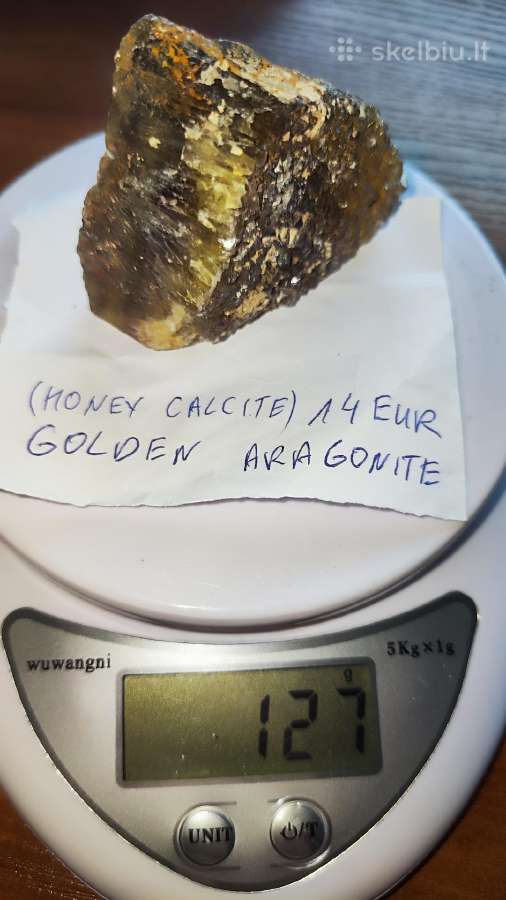 skelbiu.lt
(HONEY CALCITE) 14 EUR
GOLDEN ARAGONITE
wuwangni
5Kg×1g
g
127
UNIT
⏻/T